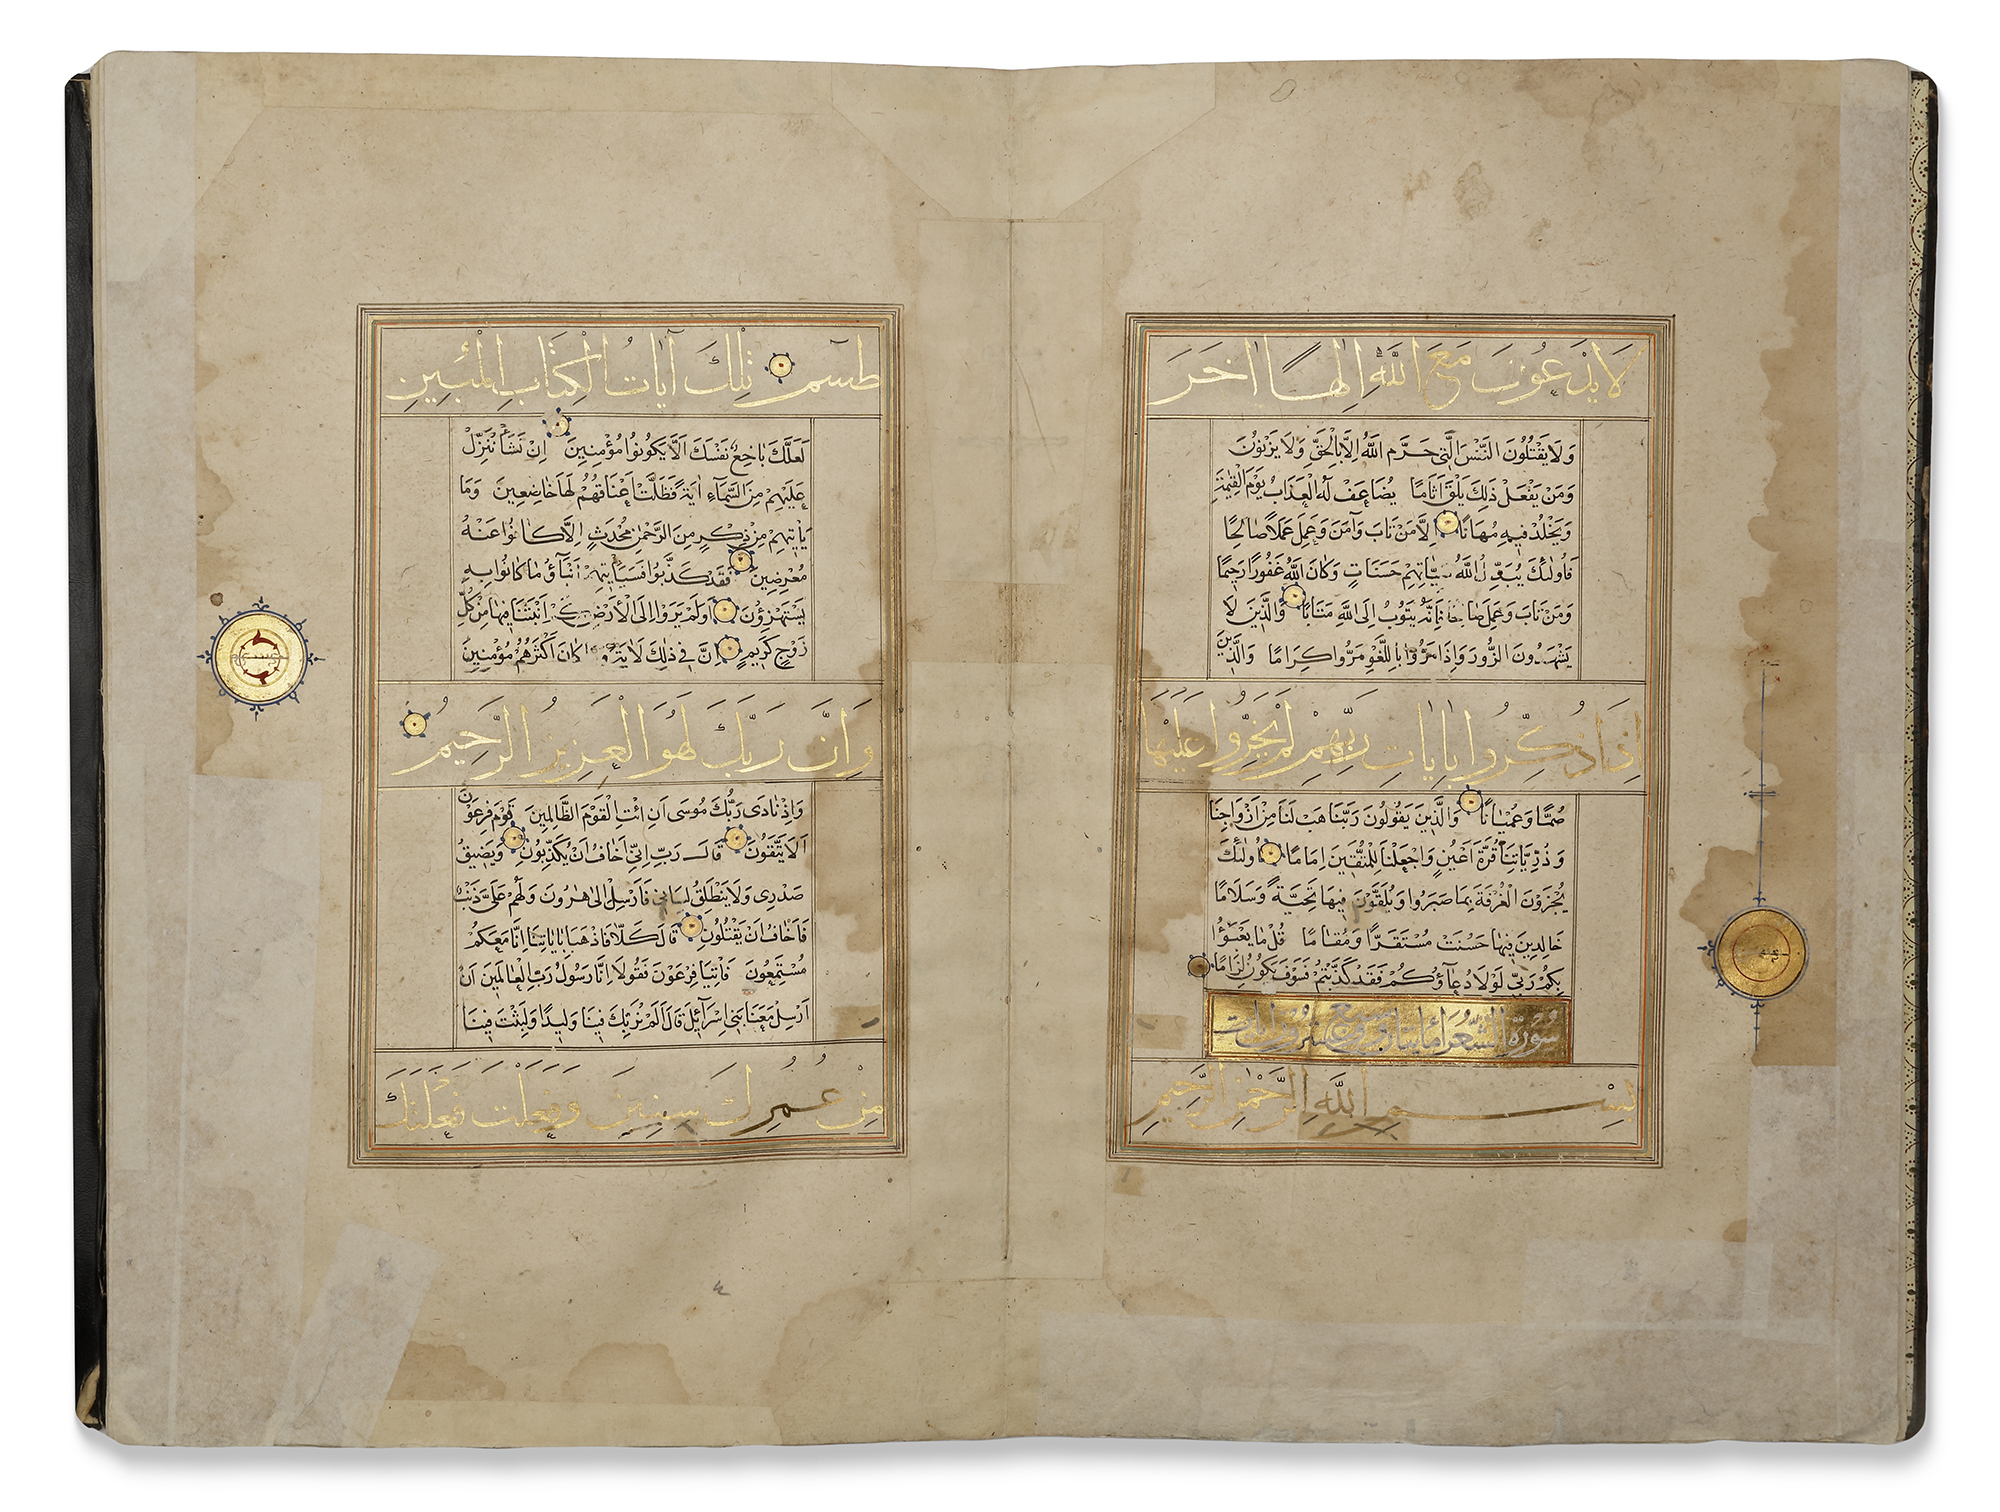 لَا يَدْعُونَ مَعَ اللَّهِ إِلٰهًا اٰخَرَ
وَلَا يَقْتُلُونَ النَّفْسَ الَّتِي حَرَّمَ اللَّهُ إِلَّا بِالْحَقِّ وَلَا يَزْنُونَ
وَمَنْ يَفْعَلْ ذَلِكَ يَلْقَ أَثَامًا يُضَاعَفْ لَهُ الْعَذَابُ يَوْمَ الْقِيٰمَةِ
وَيَخْلُدْ فِيهِ مُهَانًا إِلَّا مَنْ تَابَ وَآمَنَ وَعَمِلَ عَمَلًا صَالِحًا
فَأُولٰئِكَ يُبَدِّلُ اللَّهُ سَيِّئَاتِهِمْ حَسَنَاتٍ وَكَانَ اللَّهُ غَفُورًا رَحِيمًا
وَمَنْ تَابَ وَعَمِلَ صَالِحًا فَإِنَّهُ يَتُوبُ إِلَى اللَّهِ مَتَابًا وَالَّذِينَ لَا
يَشْهَدُونَ الزُّورَ وَإِذَا مَرُّوا بِاللَّغْوِ مَرُّوا كِرَامًا وَالَّذِينَ
إِذَا ذُكِّرُوا بِاٰيَاتِ رَبِّهِمْ لَمْ يَخِرُّوا عَلَيْهَا
صُمًّا وَعُمْيَانًا وَالَّذِينَ يَقُولُونَ رَبَّنَا هَبْ لَنَا مِنْ أَزْوَاجِنَا
وَذُرِّيَّاتِنَا قُرَّةَ أَعْيُنٍ وَاجْعَلْنَا لِلْمُتَّقِينَ إِمَامًا أُولٰئِكَ
يُجْزَوْنَ الْغُرْفَةَ بِمَا صَبَرُوا وَيُلَقَّوْنَ فِيهَا تَحِيَّةً وَسَلَامًا
خَالِدِينَ فِيهَا حَسُنَتْ مُسْتَقَرًّا وَمُقَامًا قُلْ مَا يَعْبَؤُا
بِكُمْ رَبِّي لَوْلَا دُعَاؤُكُمْ فَقَدْ كَذَّبْتُمْ فَسَوْفَ يَكُونُ لِزَامًا
سُورَةُ الشُّعَرَاءِ مائتان وسبع وعشرون آيات
بِسْمِ اللَّهِ الرَّحْمٰنِ الرَّحِيمِ
طٰسٓمٓ تِلْكَ آيَاتُ الْكِتَابِ الْمُبِينِ
لَعَلَّكَ بَاخِعٌ نَفْسَكَ أَلَّا يَكُونُوا مُؤْمِنِينَ إِنْ نَشَأْ نُنَزِّلْ
عَلَيْهِمْ مِنَ السَّمَآءِ اٰيَةً فَظَلَّتْ أَعْنَاقُهُمْ لَهَا خَاضِعِينَ وَمَا
يَأْتِيهِمْ مِنْ ذِكْرٍ مِنَ الرَّحْمٰنِ مُحْدَثٍ إِلَّا كَانُوا عَنْهُ
مُعْرِضِينَ فَقَدْ كَذَّبُوا فَسَيَأْتِيهِمْ أَنْبَآؤُ مَا كَانُوا بِهِ
يَسْتَهْزِؤُنَ أَوَلَمْ يَرَوْا إِلَى الْأَرْضِ كَمْ أَنْبَتْنَا فِيهَا مِنْ كُلِّ
زَوْجٍ كَرِيمٍ إِنَّ فِي ذٰلِكَ لَاٰيَةً وَمَا كَانَ أَكْثَرُهُمْ مُؤْمِنِينَ
وَإِنَّ رَبَّكَ لَهُوَ الْعَزِيزُ الرَّحِيمُ
وَإِذْ نَادَى رَبُّكَ مُوسَى أَنِ ائْتِ الْقَوْمَ الظَّالِمِينَ قَوْمَ فِرْعَوْنَ
أَلَا يَتَّقُونَ قَالَ رَبِّ إِنِّي أَخَافُ أَنْ يُكَذِّبُونِ وَيَضِيقُ
صَدْرِي وَلَا يَنْطَلِقُ لِسَانِي فَأَرْسِلْ إِلَى هٰرُونَ وَلَهُمْ عَلَيَّ ذَنْبٌ
فَأَخَافُ أَنْ يَقْتُلُونِ قَالَ كَلَّا فَاذْهَبَا بِاٰيَاتِنَا إِنَّا مَعَكُمْ
مُسْتَمِعُونَ فَأْتِيَا فِرْعَوْنَ فَقُولَا إِنَّا رَسُولُ رَبِّ الْعَالَمِينَ أَنْ
أَرْسِلْ مَعَنَا بَنِي إِسْرَآئِيلَ قَالَ أَلَمْ نُرَبِّكَ فِينَا وَلِيدًا وَلَبِثْتَ فِينَا
مِنْ عُمُرِكَ سِنِينَ وَفَعَلْتَ فَعْلَتَكَ